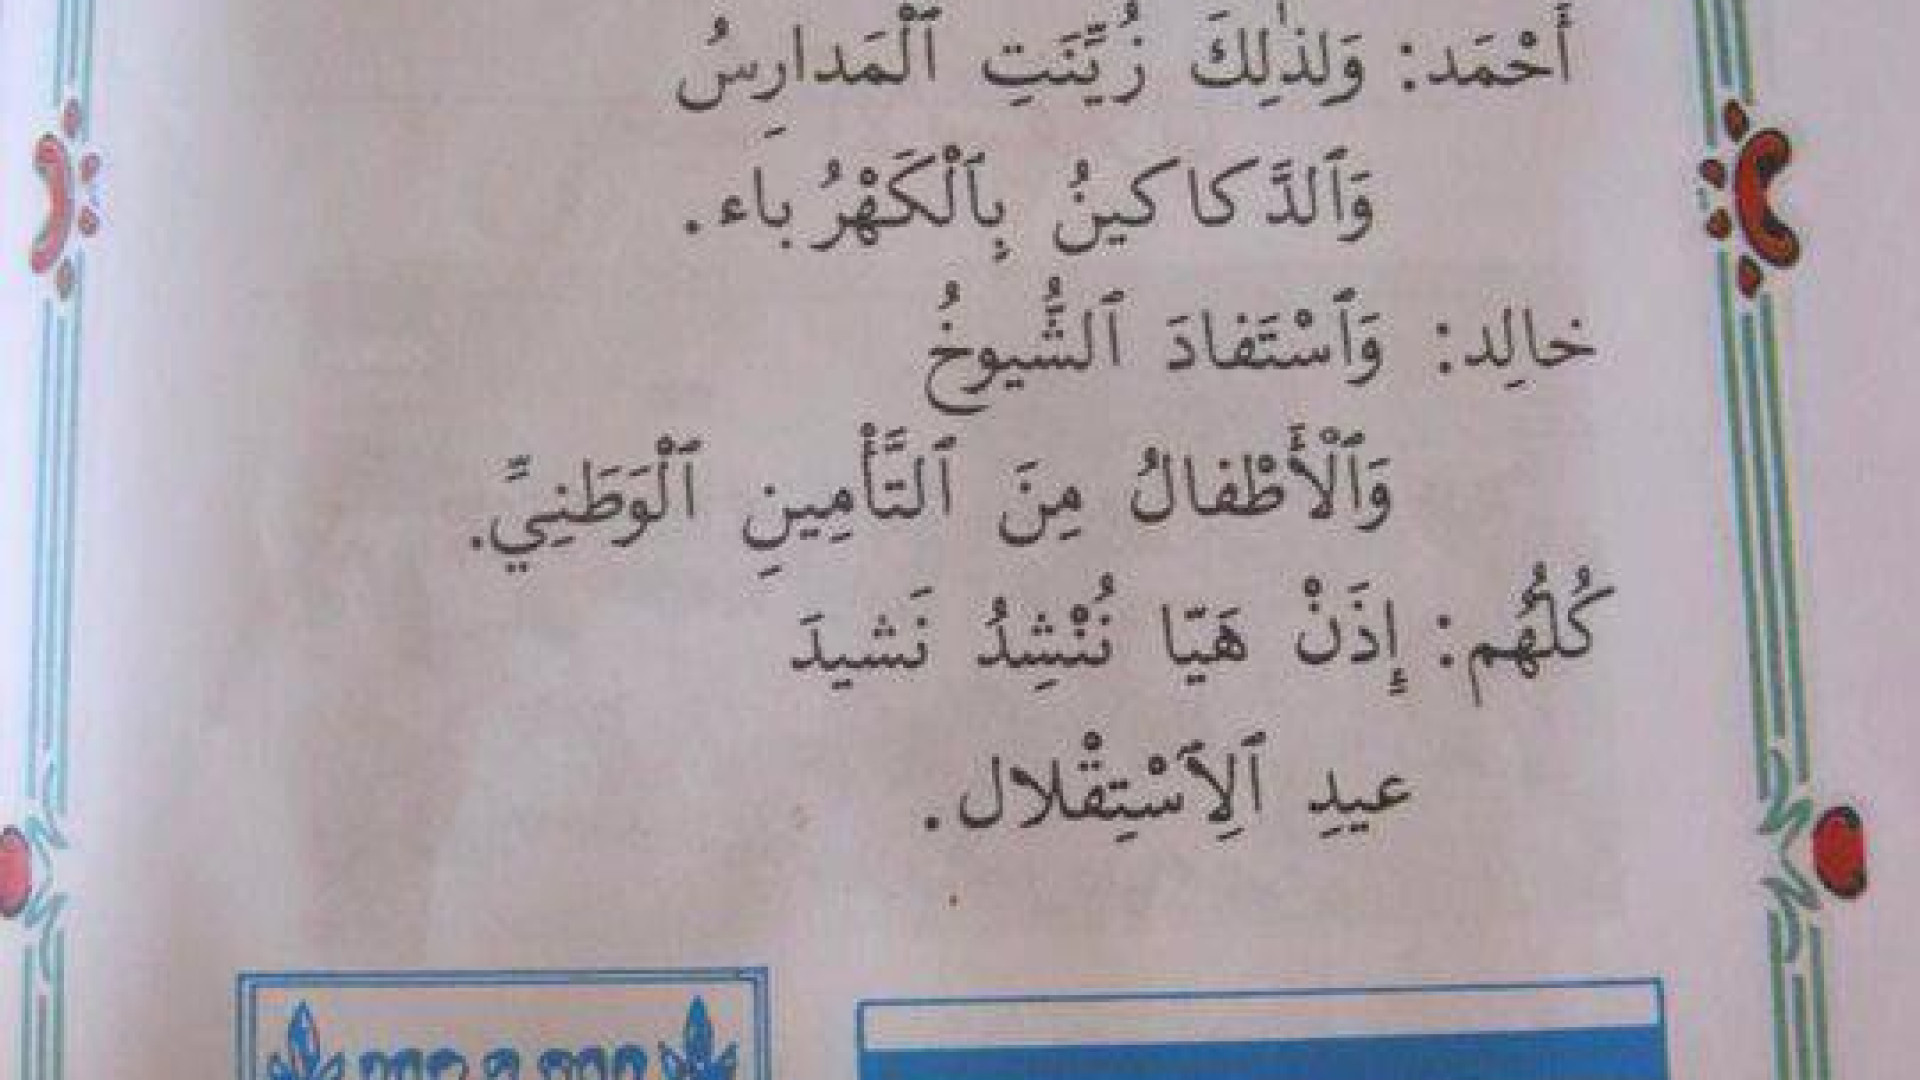 أَحْمَد: وَلِذٰلِكَ زُيِّنَتِ ٱلْمَدارِسُ
وَٱلدَّكاكينُ بِٱلْكَهْرُباء.
خالِد: وَٱسْتَفادَ ٱلشُّيوخُ
وَٱلْأَطْفالُ مِنَ ٱلتَّأْمِينِ ٱلْوَطَنِيِّ.
كُلُّهُم: إِذَنْ هَيّا نُنْشِدُ نَشيدَ
عيدِ ٱلِٱسْتِقْلال.